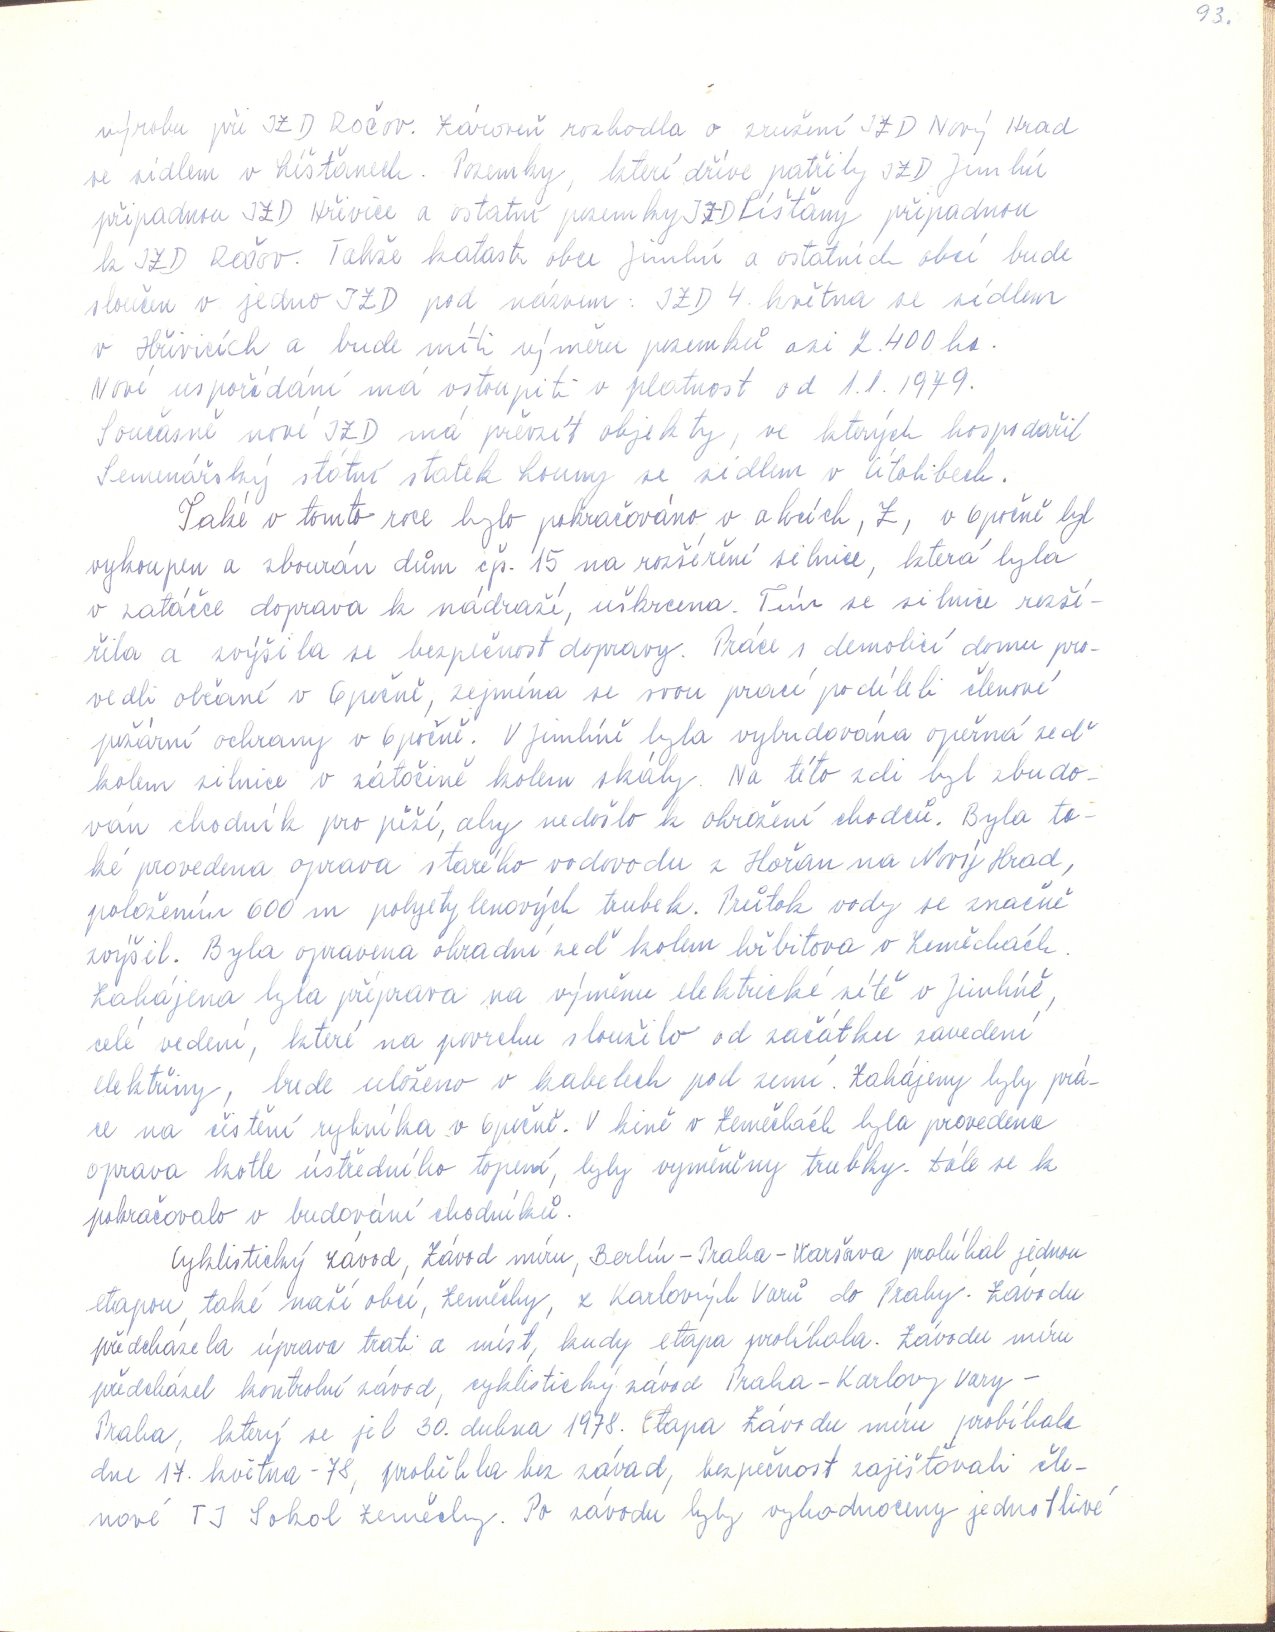 93.
výrobu při JZD Ročov. Zároveň rozhodla o zrušení JZD Nový Hrad
se sídlem v Líšťanech. Pozemky, které dříve patřily JZD Jimlín
připadnou JZD Hřivice a ostatní pozemky JZD Líšťany připadnou
k JZD Ročov. Takže katastr obce Jimlín a ostatních obcí bude
sloučen v jedno JZD pod názvem: JZD 4. května se sídlem
v Hřivicích a bude míti výměru pozemků asi 2.400 ha.
Nové uspořádání má vstoupiti v platnost od 1.1.1979.
Současně nové JZD má převzít objekty, ve kterých hospodařil
Semenářský státní statek Louny se sídlem v Cítolibech.
Také v tomto roce bylo pokračováno v akcích, Z, v Opočně byl
vykoupen a zbourán dům čp. 15 na rozšíření silnice, která byla
v zatáčce doprava k nádraží, uškrcena. Tím se silnice rozší-
řila a zvýšila se bezpečnost dopravy. Práce s demolicí domu pro-
vedli občané v Opočně, zejména se svou prací podíleli členové
požární ochrany v Opočně. V Jimlíně byla vybudována opěrná zeď
kolem silnice v zátočině kolem skály. Na této zdi byl zbudo-
ván chodník pro pěší, aby nedošlo k ohrožení chodců. Byla ta-
ké provedena oprava starého vodovodu z Hořan na Nový Hrad,
položením 600 m polyetylenových trubek. Průtok vody se značně
zvýšil. Byla opravena ohradní zeď kolem hřbitova v Zeměchách.
Zahájena byla příprava na výměnu elektrické sítě v Jimlíně,
celé vedení, které na povrchu sloužilo od začátku zavedení
elektřiny, bude uloženo v kabelech pod zemí. Zahájeny byly prá-
ce na čistění rybníka v Opočně. V kině v Zeměchách byla provedena
oprava kotle ústředního topení, byly vyměněny trubky. Dále se k
pokračovalo v budování chodníků.
Cyklistický závod, Závod míru, Berlín - Praha - Varšava probíhal jednou
etapou, také naší obcí, Zeměchy, z Karlových Varů do Prahy. Závodu
předcházela úprava trati a míst, kudy etapa probíhala. Závodu míru
předcházel kontrolní závod, cyklistický závod Praha - Karlovy Vary -
Praha, který se jel 30. dubna 1978. Etapa Závodu míru probíhala
dne 17. května - 78, proběhla bez závad, bezpečnost zajišťovali čle-
nové TJ Sokol Zeměchy. Po závodu byly vyhodnoceny jednotlivé